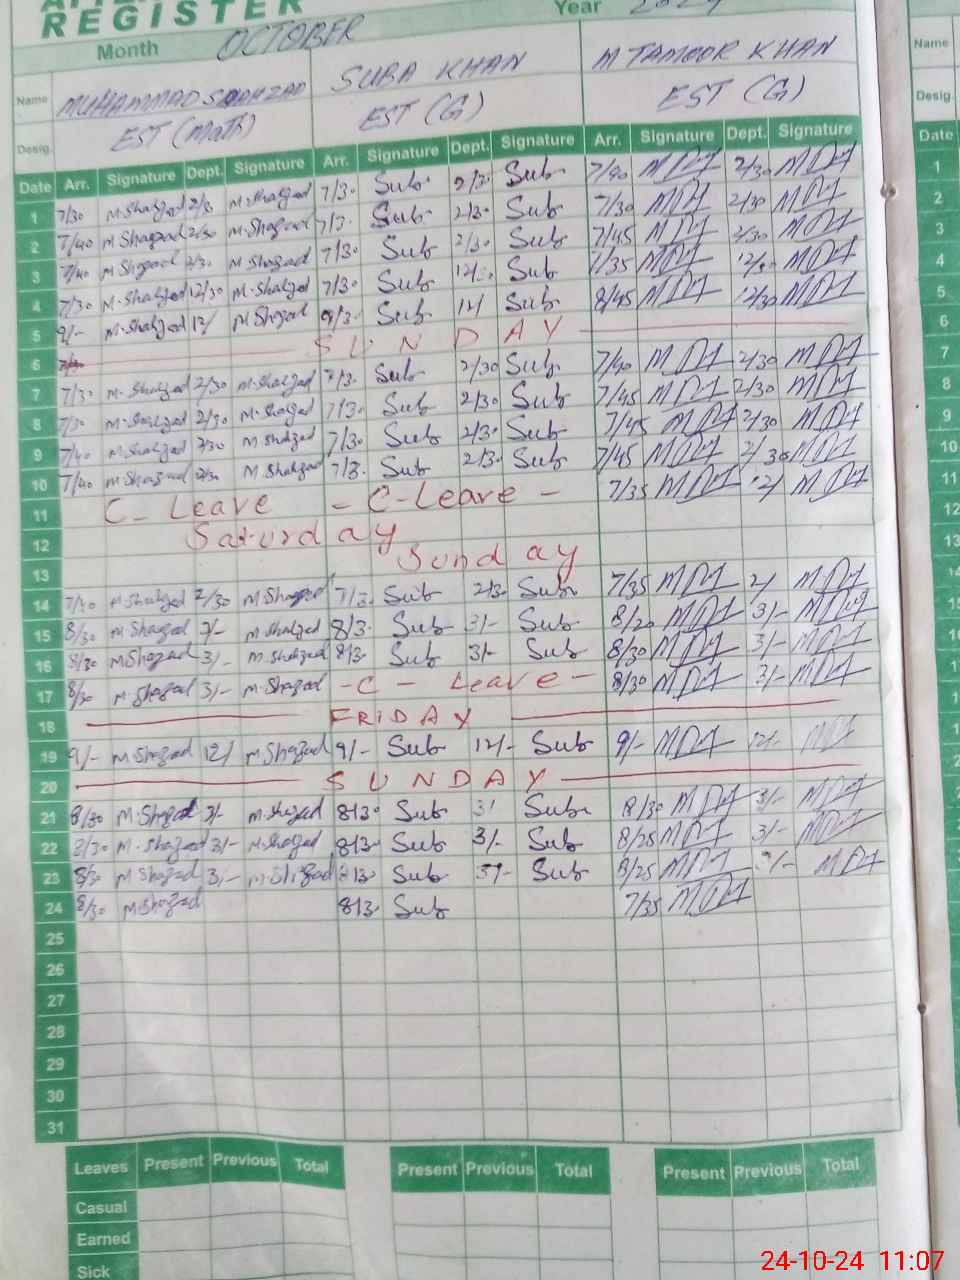 REGISTER
Year 2024
Month OCTOBER
Name MUHAMMAD SHAHZAD SUBA KHAN M TAMOOR KHAN Name
Desig. EST (Math) EST (G) EST (G) Desig.
Date Arr. Signature Dept. Signature Arr. Signature Dept. Signature Arr. Signature Dept. Signature Date
1 7/30 M.Shahzad 2/3 M.Shahzad 7/30 Sub 2/3 Sub 7/40 2/30 1
2 7/40 M Shahzad 2/30 M Shahzad 7/3 Sub 2/30 Sub 7/30 2/30 2
3 7/40 M Shahzad 2/30 M Shahzad 7/30 Sub 2/30 Sub 7/45 2/30 3
4 7/30 M.Shahzad 12/30 M.Shahzad 7/30 Sub Sub 7/35 12/30 4
5 9/- M.Shahzad 12/ M Shahzad 9/3 Sub 12/ Sub 8/45 12/30 5
6 SUNDAY 6
7 7/30 M.Shahzad 2/30 M.Shahzad 7/3 Sub 2/30 Sub 7/40 2/30 7
8 7/30 M.Shahzad 2/30 M.Shahzad 7/30 Sub 2/30 Sub 7/45 2/30 8
9 7/40 M.Shahzad 2/30 M.Shahzad 7/30 Sub 2/30 Sub 7/45 2/30 9
10 7/40 M.Shahzad 2/30 M.Shahzad 7/3 Sub 2/3 Sub 7/45 2/30 10
11 C-Leave - C-Leave - 7/35 2/ 11
12 Saturday 12
13 Sunday 13
14 7/30 M.Shahzad 2/30 M.Shahzad 7/3 Sub 2/3 Sub 7/35 2/
15 8/30 M.Shahzad 3/- M.Shahzad 8/3 Sub 3/- Sub 8/20 3/-
16 8/30 M Shahzad 3/- M.Shahzad 8/3 Sub 3/- Sub 8/30 3/-
17 8/30 M.Shahzad 3/- M.Shahzad - C - Leave - 8/30 3/-
18 FRIDAY
19 9/- M Shahzad 12/ M Shahzad 9/- Sub 12/- Sub 9/- 12/-
20 SUNDAY
21 8/30 M.Shahzad 3/- M.Shahzad 8/30 Sub 3/ Sub 8/30 3/-
22 8/30 M.Shahzad 3/- M.Shahzad 8/3 Sub 3/- Sub 8/25 3/-
23 8/30 M Shahzad 3/- M.Shahzad 8/30 Sub 3/- Sub 8/25 3/-
24 8/30 M Shahzad 8/3 Sub 7/35
25
26
27
28
29
30
31
Leaves Present Previous Total Present Previous Total Present Previous Total
Casual
Earned
Sick
24-10-24 11:07